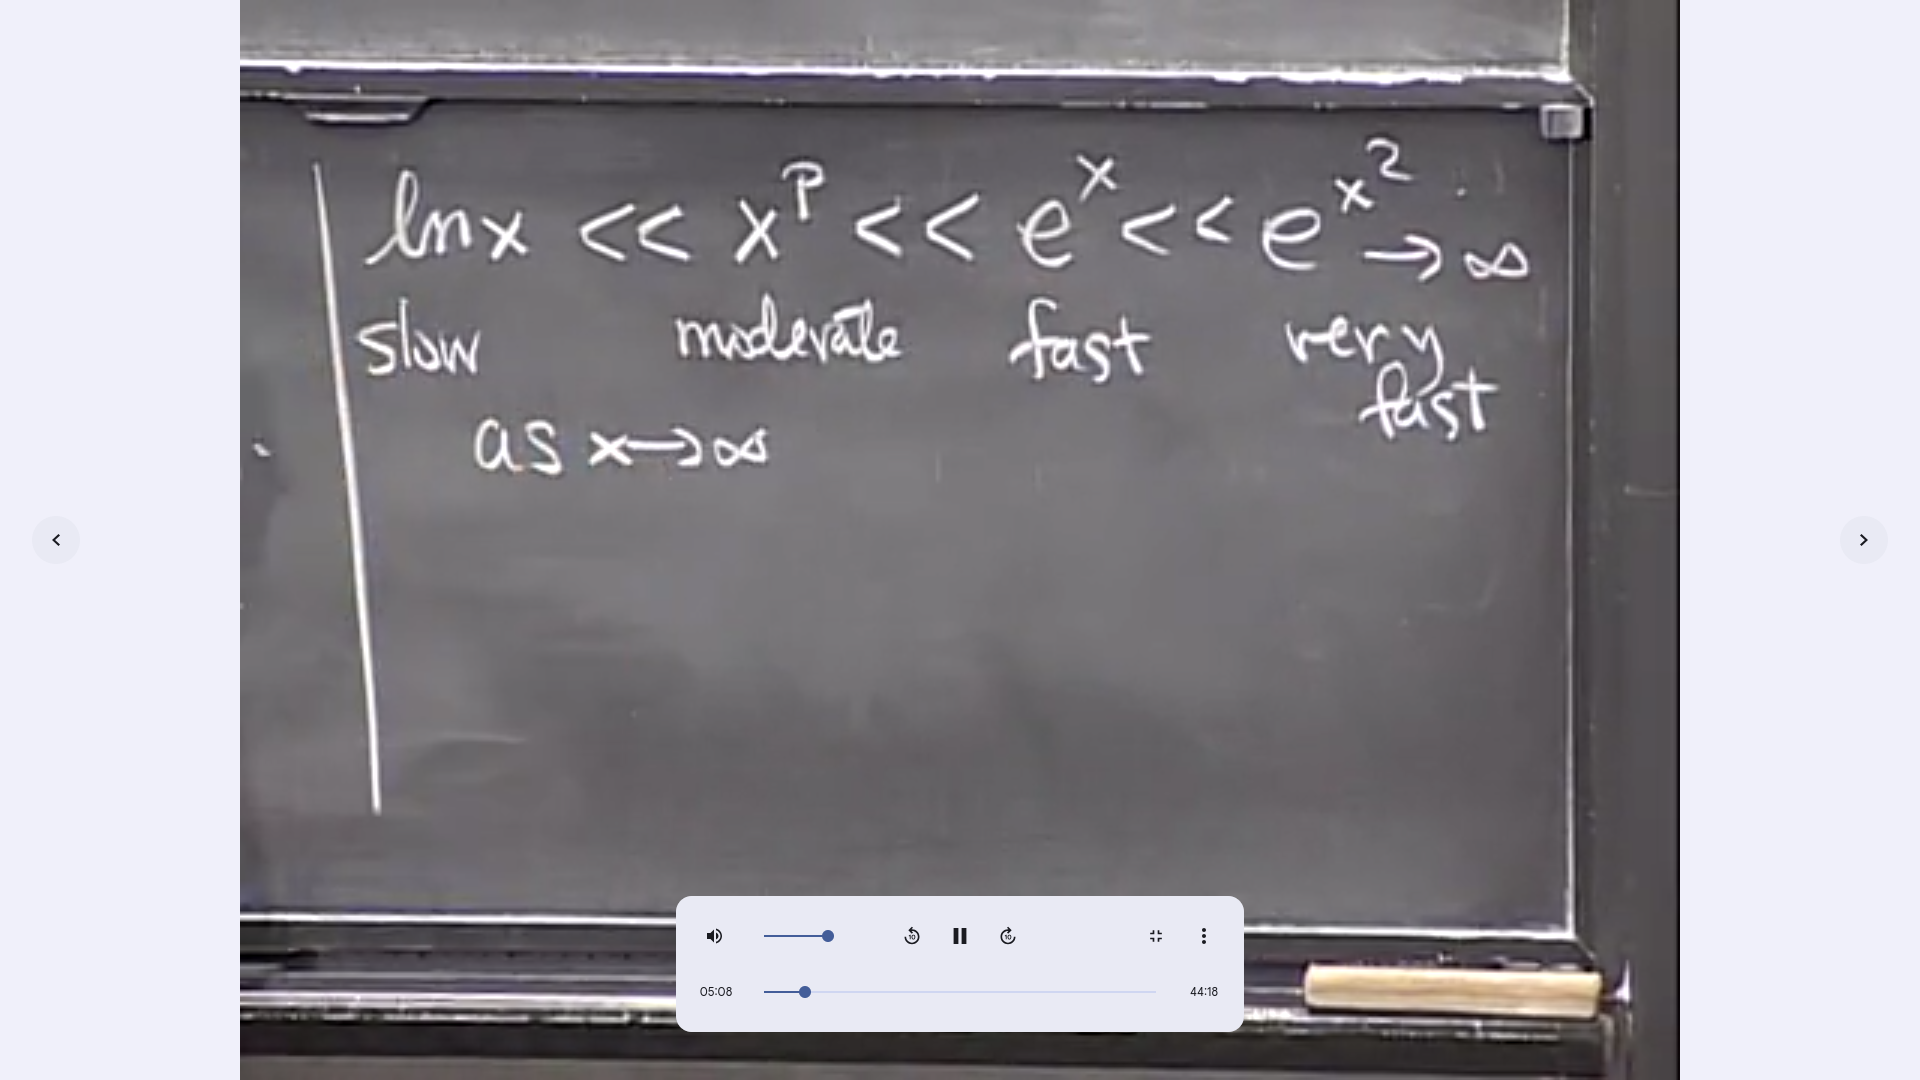 ln x << x^p << e^x << e^x^2 → ∞
slow moderate fast very fast
as x → ∞
05:08 44:18